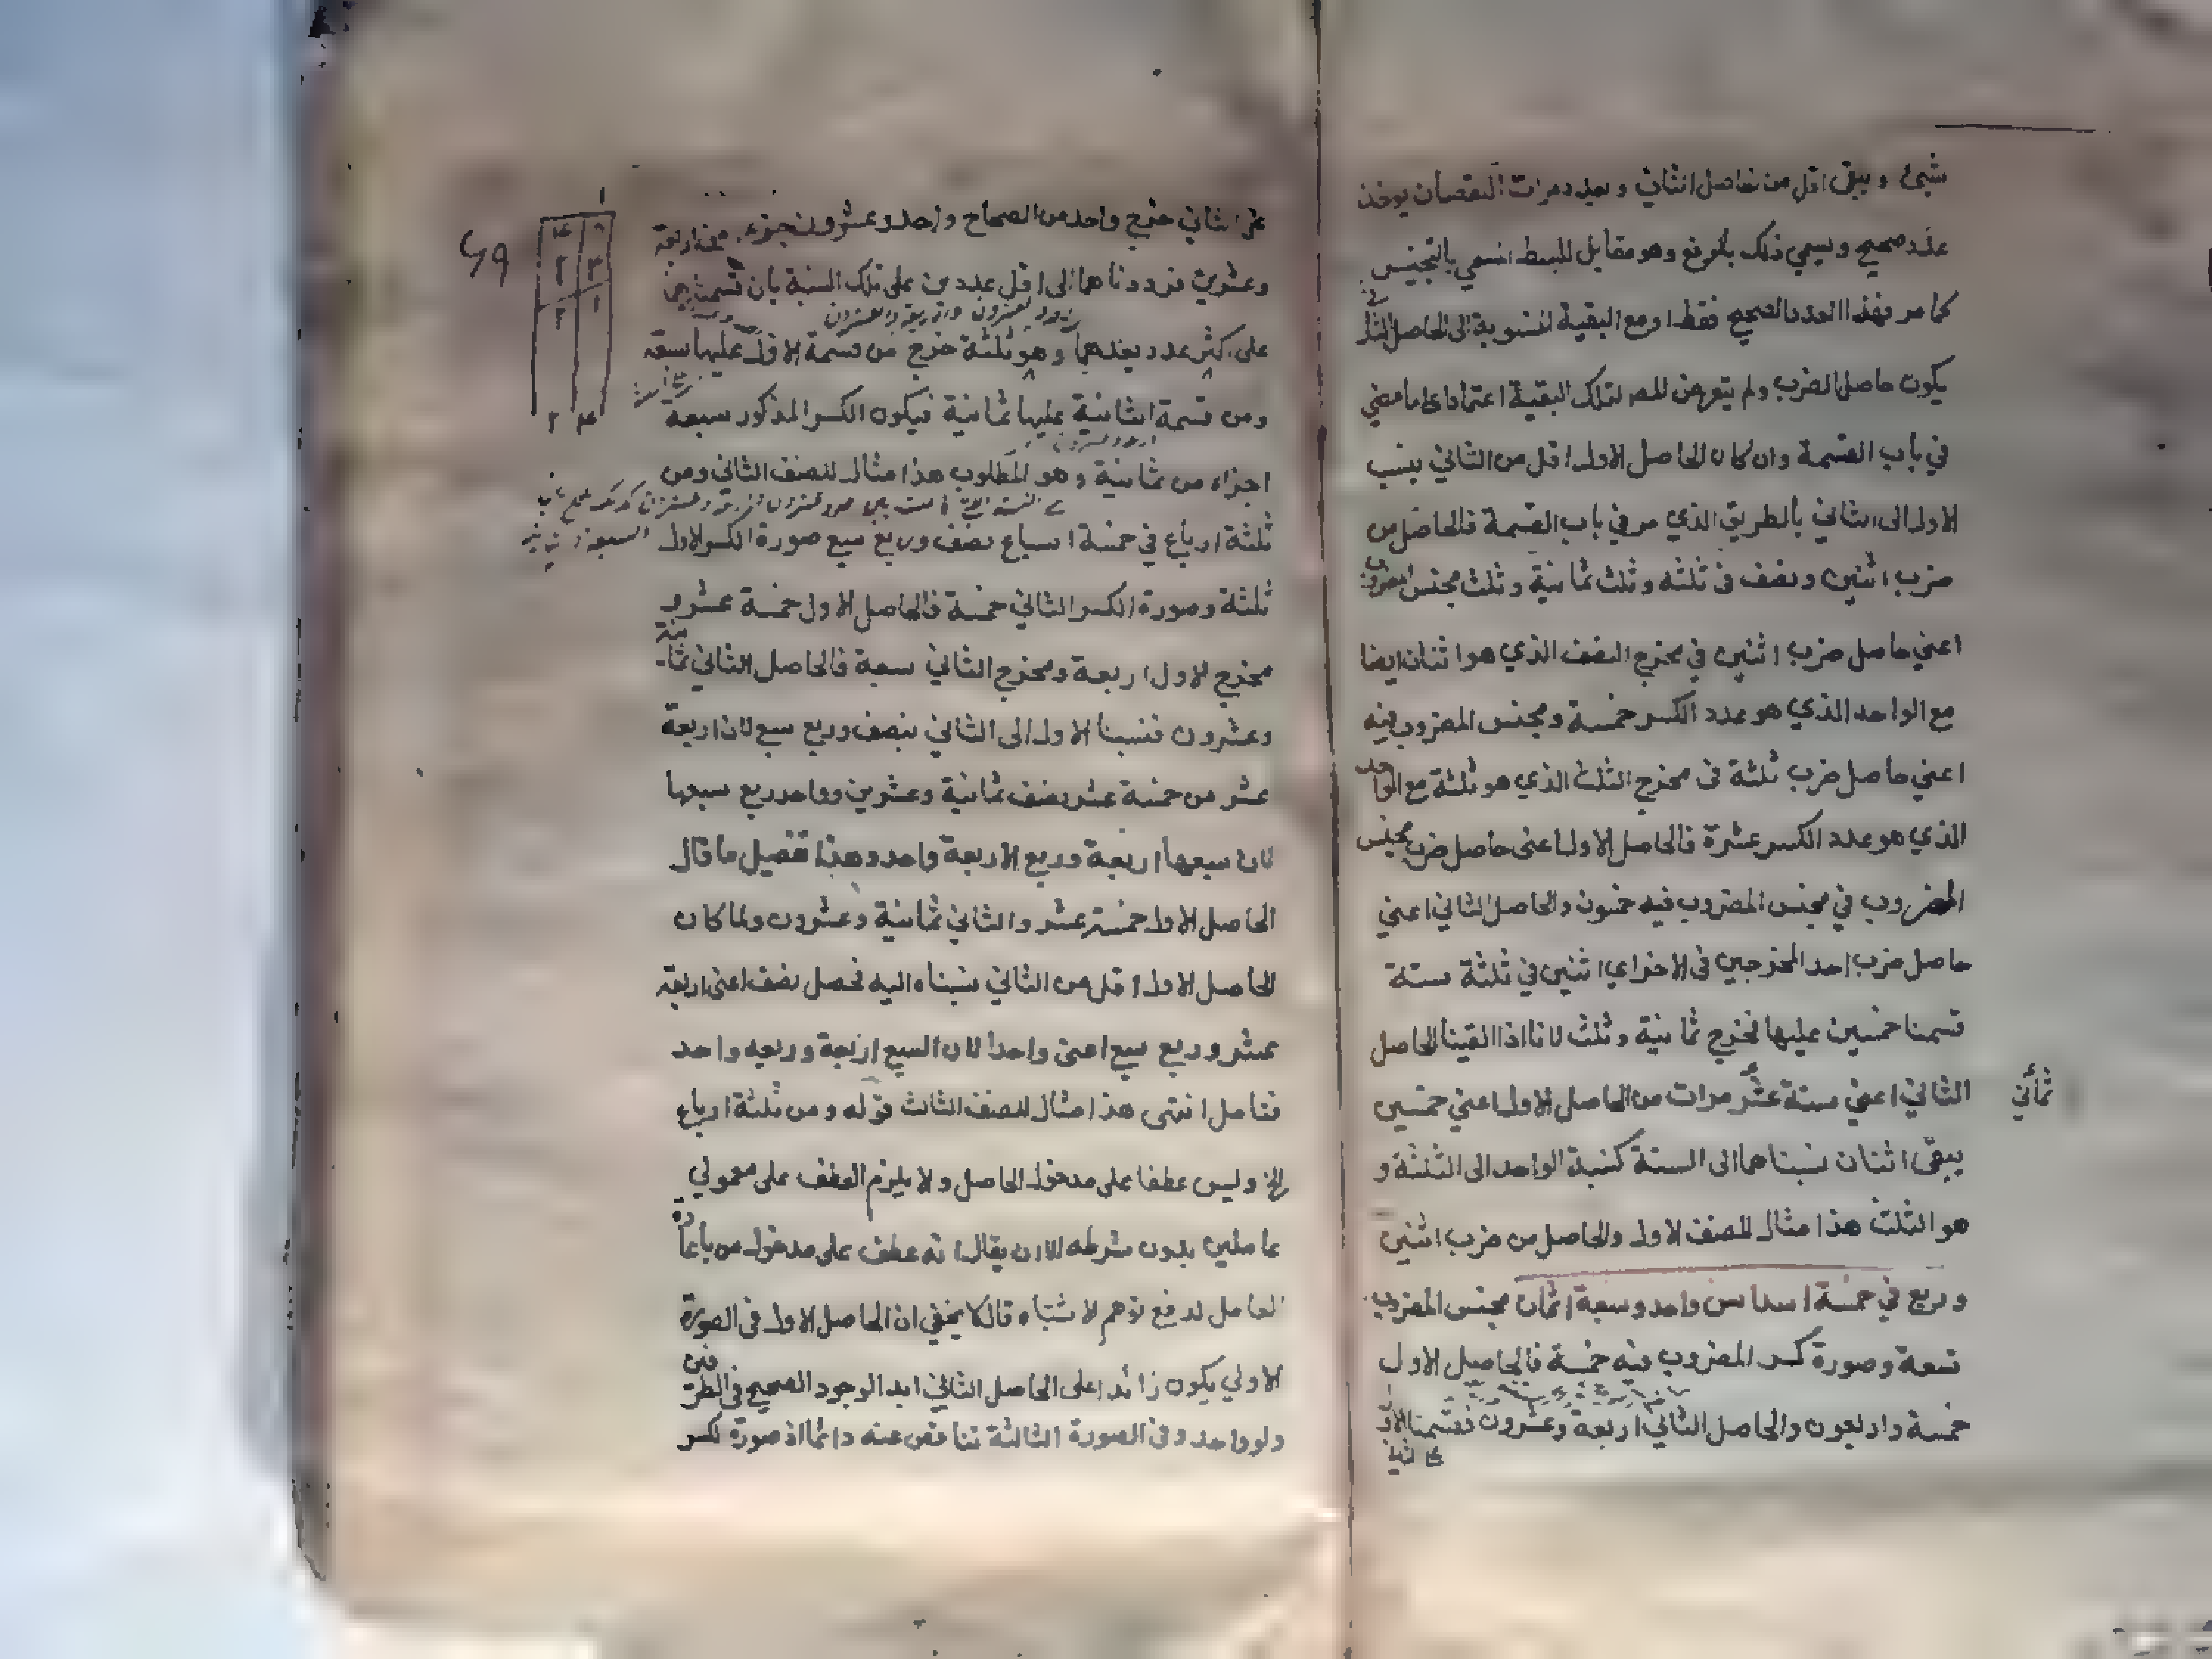 شيئ ويبقى اقل من الحاصل الثاني وبعدد مرات النقصان يوخذ
عدد صحيح ويسمي ذلك بالرفع وهو مقابل للبسط المسمي بالتجنيس
كما مر فهذا العدد الصحيح فقط او مع البقية المنسوبة الى الحاصل الثا
يكون حاصل الضرب ولم يتعرض المصـ لتلك البقية اعتمادا على ما مضي
في باب القسمة وان كان الحاصل الاول اقل من الثاني ينسب
الاول الى الثاني بالطريق الذي مر في باب القسمة فالحاصل من
ضرب اثنين ونصف في ثلثة وثلث ثمانية وثلث مجنس المضروب
اعني حاصل ضرب اثنين في مخرج النصف الذي هو اثنان ايضا
مع الواحد الذي هو عدد الكسر خمسة ومجنس المضروب فيه
اعني حاصل ضرب ثلثة في مخرج الثلث الذي هو ثلثة مع الواحد
الذي هو عدد الكسر عشرة فالحاصل الاول اعني حاصل ضرب مجنس
المضروب في مجنس المضروب فيه خمسون والحاصل الثاني اعني
حاصل ضرب احد المخرجين في الاخر اي اثنين في ثلثة ستة
قسمنا خمسين عليها فخرج ثمانية وثلث لانا اذا القينا الحاصل
الثاني اعني ستة عشر مرات من الحاصل الاول اعني خمسين
ثماني
يبقى اثنان نسبناهما الى الستة كنسبة الواحد الى الثلثة و
هو الثلث هذا مثال للصنف الاول والحاصل من ضرب اثنين
وربع في خمسة اسداس واحد وسبعة اثمان مجنس المضروب
تسعة وصورة كسر المضروب فيه خمسة فالحاصل الاول
خمسة واربعون والحاصل الثاني اربعة وعشرون فقسمنا الاول
على الثاني خرج واحد من الصحاح واحد وعشرون جزء من اربعة
وعشرين فرددناهما الى اقل عددين على تلك النسبة بان قسمناهما
على اكثر عدد يعدهما وهو ثلثة خرج من قسمة الاول عليها سبعة
ومن قسمة الثانية عليها ثمانية فيكون الكسر المذكور سبعة
اجزاء من ثمانية وهو المطلوب هذا مثال للصنف الثاني ومن
ثلثة ارباع في خمسة اسباع نصف وربع سبع صورة الكسر الاول
ثلثة وصورة الكسر الثاني خمسة فالحاصل الاول خمسة عشر و
مخرج الاول اربعة ومخرج الثاني سبعة فالحاصل الثاني ثمانية
وعشرون فنسبنا الاول الى الثاني بنصف وربع سبع لان اربعة
عشر من خمسة عشر نصف ثمانية وعشرين وواحد ربع سبعها
لان سبعها اربعة وربع الاربعة واحد وهذا تفصيل ما قال
الحاصل الاول خمسة عشر والثاني ثمانية وعشرون ولما كان
الحاصل الاول اقل من الثاني نسبناه اليه فحصل نصف اعني اربعة
عشر وربع سبع اعني واحدا لان السبع اربعة وربعه واحد
فتامل انتهى هذا مثال للصنف الثالث قوله ومن ثلثة ارباع
الخ وليس عطفا على مدخول الحاصل ولا يلزم العطف على معمولي
عاملين بدون شرطه الا ان يقال انه عطف على مدخول من باعادة
العامل لدفع توهم الاشتباه قال لا يخفي ان الحاصل الاول في الصورة
الاولي يكون زائدا على الحاصل الثاني ابدا لوجود الصحيح في الطرفين
ولو واحد وفي الصورة الثالثة ناقص عنه دائما اذ صورة لكسر